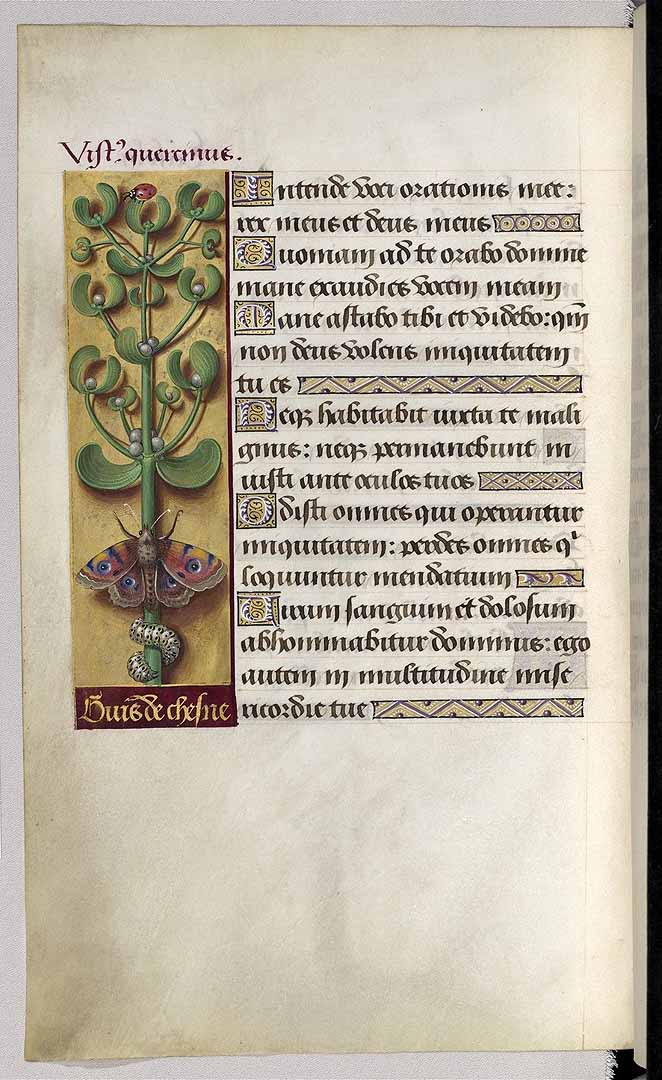 Visc⁹ quercinus.
Intende voci orationis mee:
rex meus et deus meus
Quoniam ad te orabo domine
mane exaudies vocem meam
Mane astabo tibi et videbo: qm̄
non deus volens iniquitatem
tu es
Neqꝫ habitabit iuxta te mali
gnus: neqꝫ permanebunt in
iusti ante oculos tuos
Odisti omnes qui operantur
iniquitatem: perdes omnes qⁱ
loquuntur mendatium
Uirum sanguinū et dolosum
abhominabitur dominus: ego
autem in multitudine mise
ricordie tue
Guis de chesne